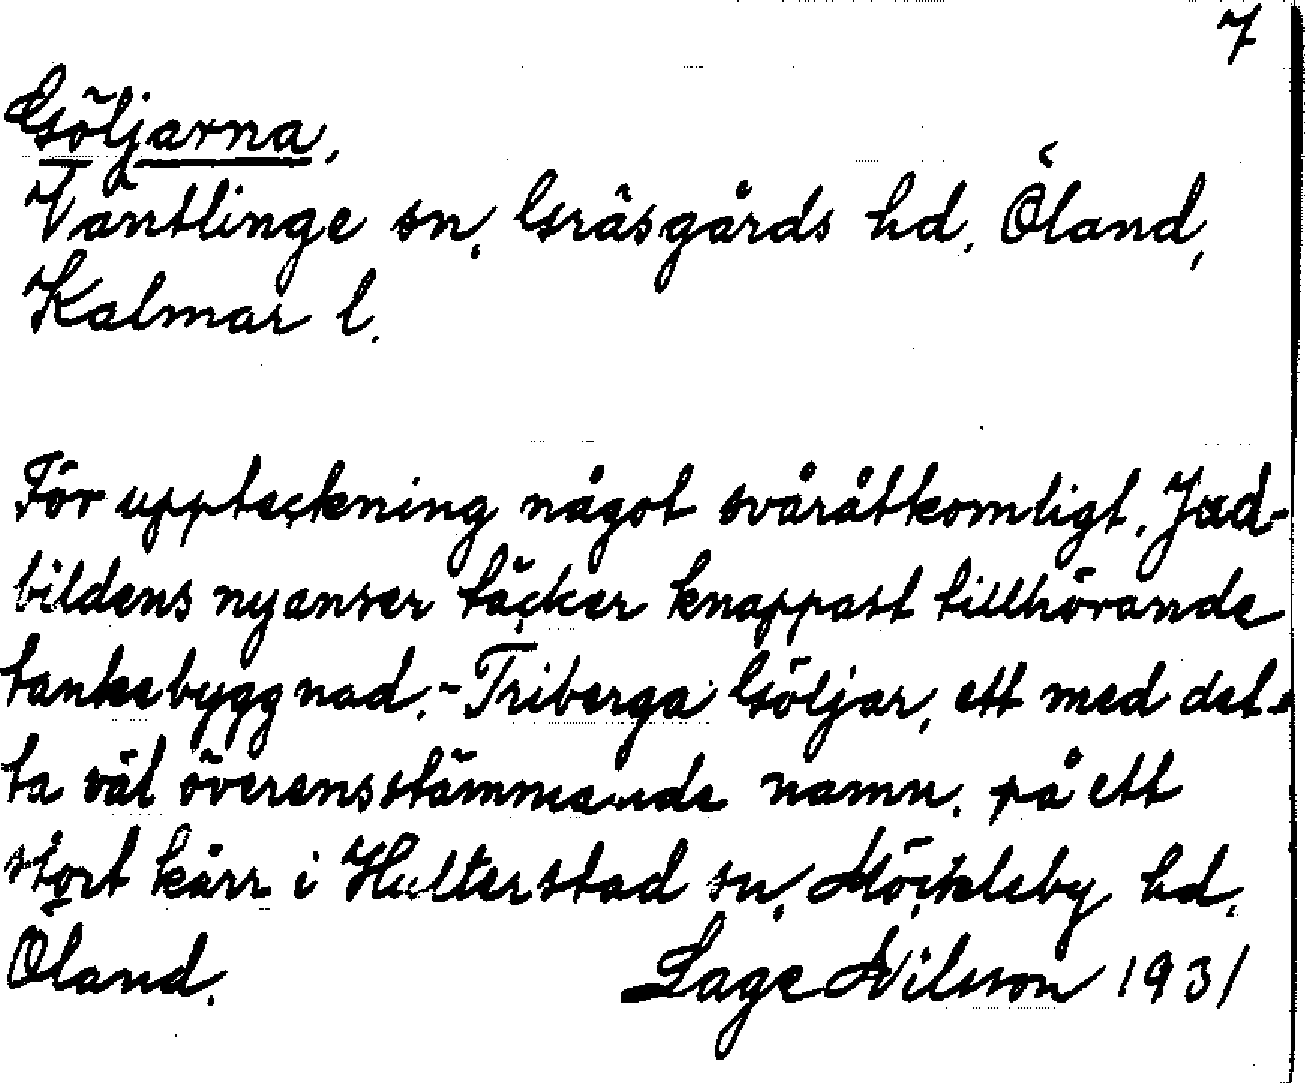 7
Göljarna,
Väntlinge sn, Gräsgårds hd, Öland,
Kalmar l.
För uppteckning något svåråtkomligt. Jud-
bildens nyanser täcker knappast tillhörande
tankebyggnad. - Triberga Göljar, ett med det-
ta väl överensstämmande namn, på ett
stort kärr i Hulterstad sn, Möckleby hd,
Öland. Lage Nilsson 1931